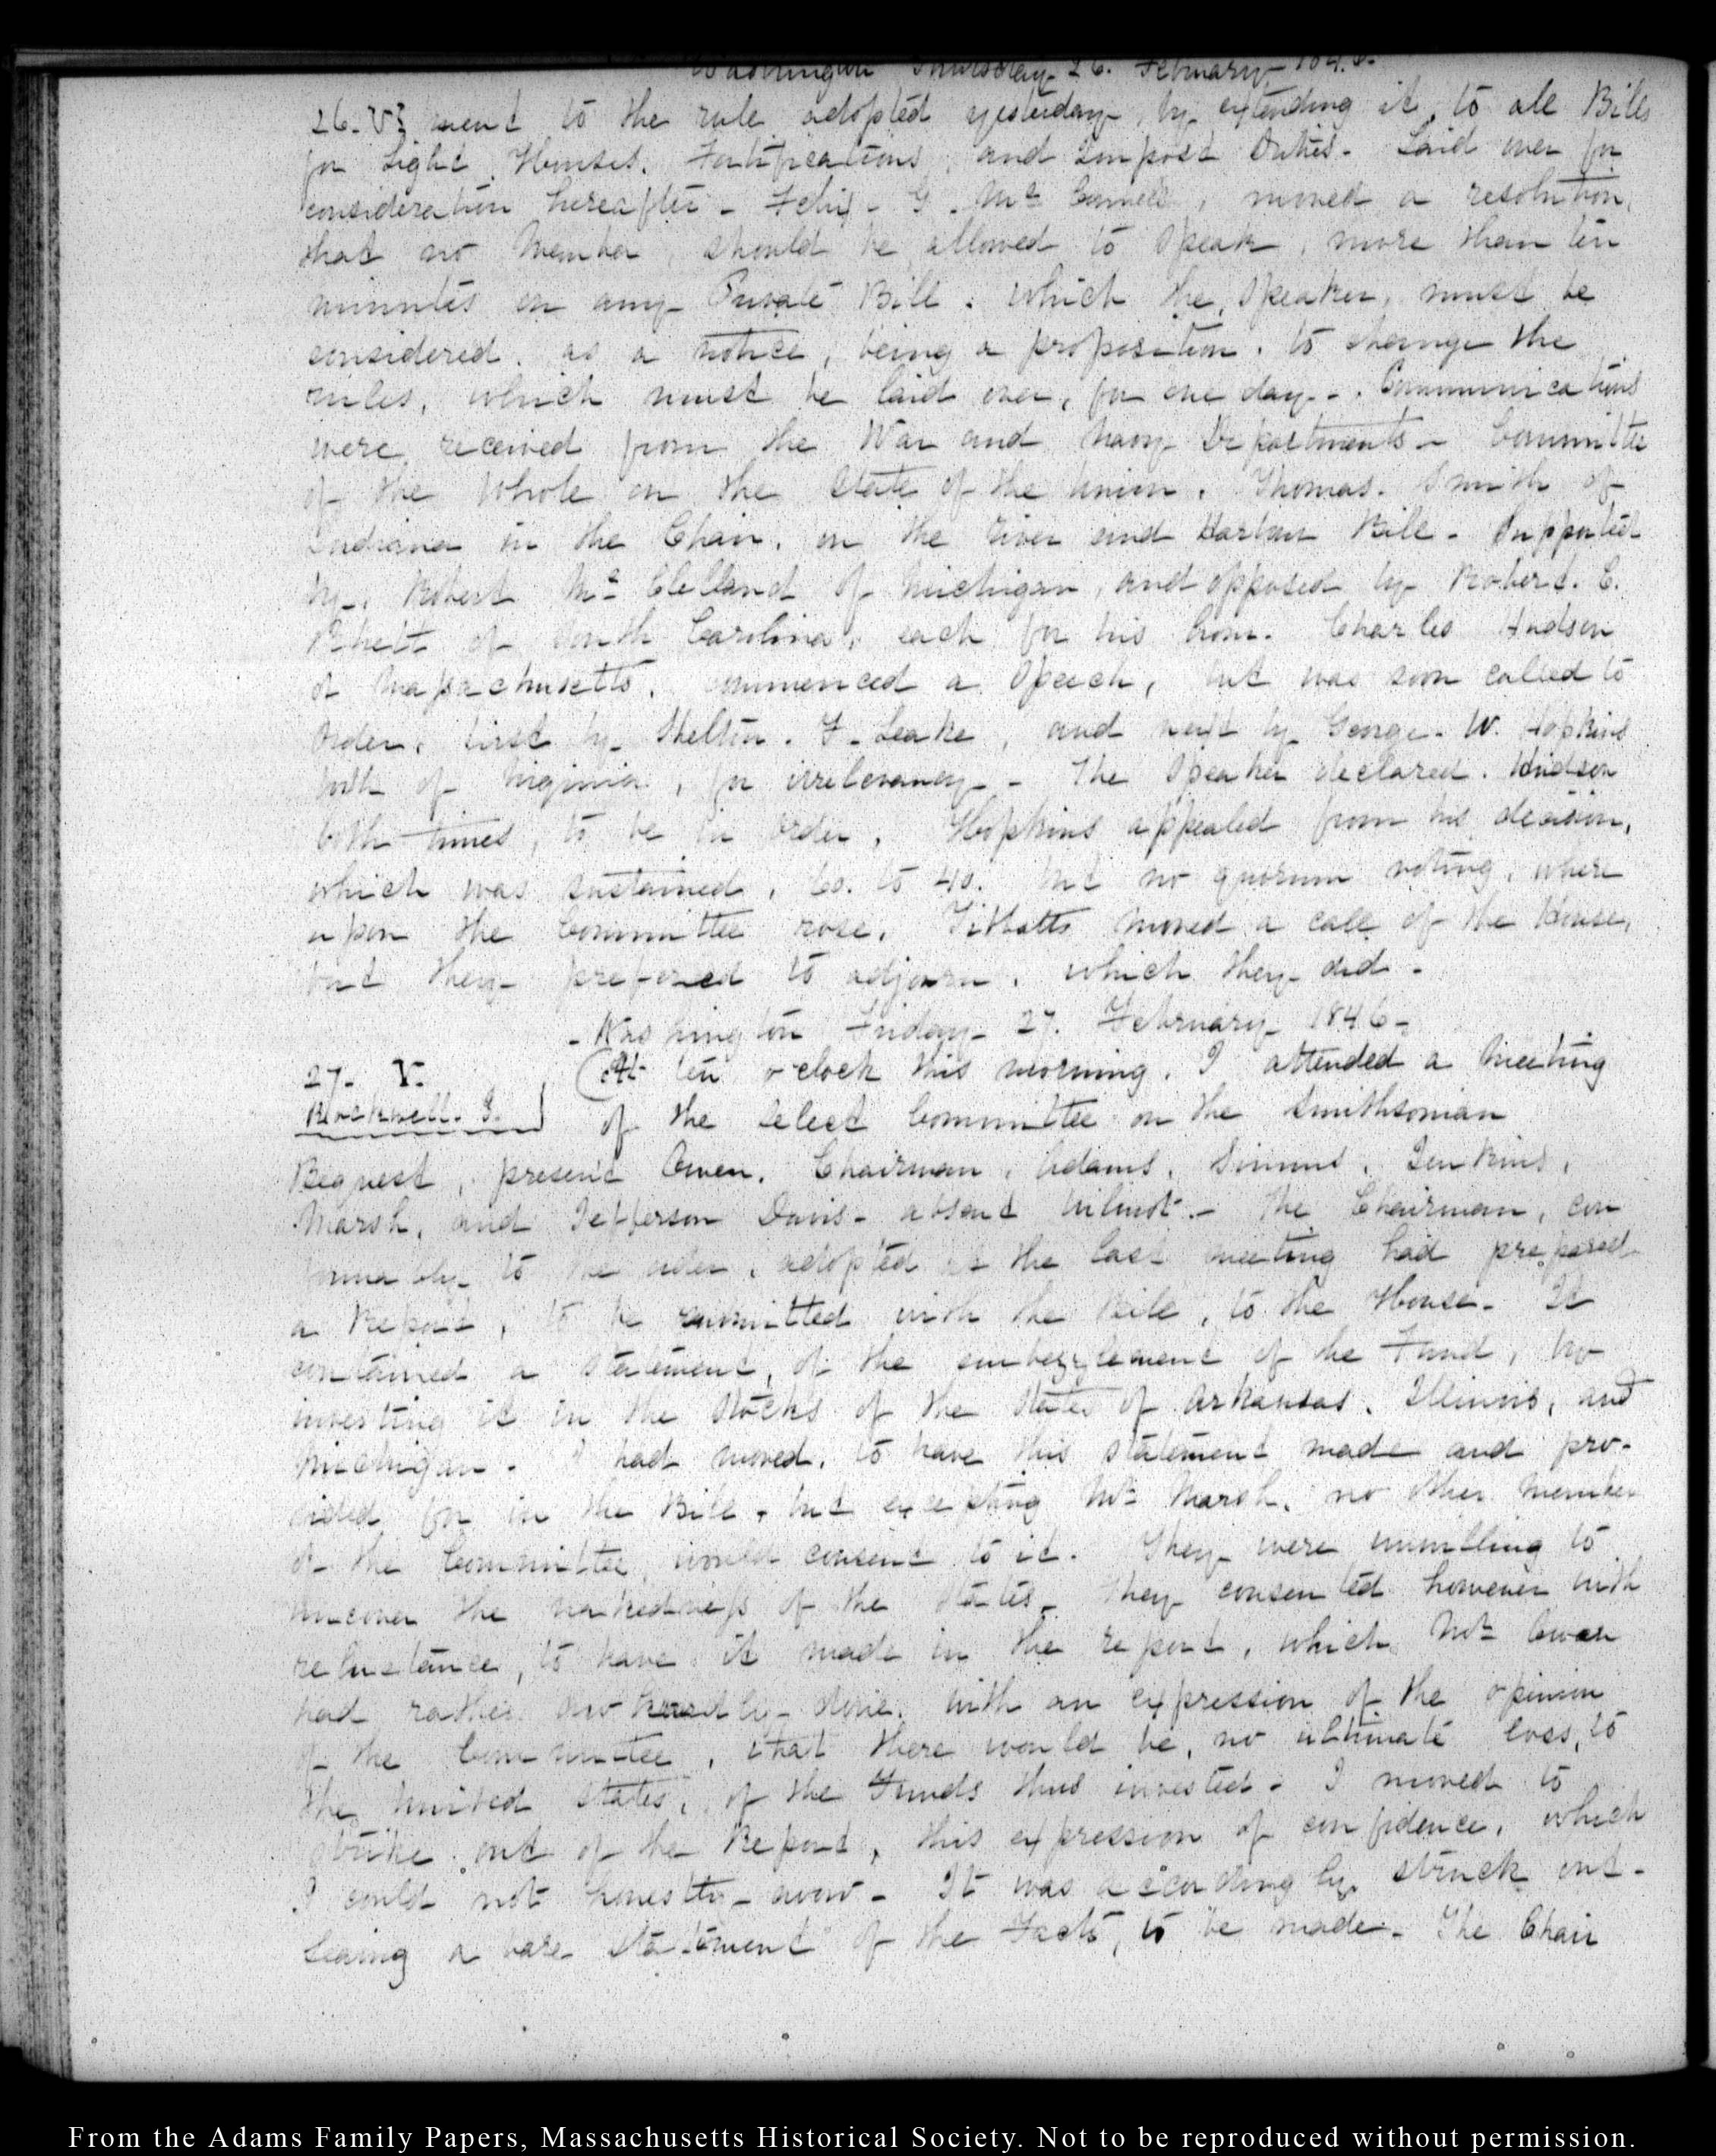 Washington Thursday 26. February 1846.
26. V. ment to the rule adopted yesterday, by extending it, to all Bills
for Light Houses, Fortifications, and Impost Duties. Laid over for
consideration hereafter - Felix - G. Mc Connell, moved a resolution,
that no Member, should be allowed to speak, more than ten
minutes on any Private Bill. which the, Speaker, must be
considered. as a notice, being a proposition. to change the
rules, which must be laid over, for one day -. Communications
were received from the War and Navy Departments - Committee
of the Whole on the State of the Union. Thomas. Smith of
Indiana in the Chair. on the River and Harbour Bill - Supported
by, Robert Mc Clelland of Michigan, and opposed by Robert. B.
Rhett of South Carolina, each for his hour. Charles Hudson
of Massachusetts, commenced a Speech, but was soon called to
Order, first by Shelton. F. Leake, and next by George. W. Hopkins
both of Virginia, for irrelevancy - The Speaker declared. Hudson
both times, to be in order. Hopkins appealed from his decision,
which was sustained, 60. to 40. but no quorum voting, where
upon the Committee rose. Tibbatts moved a call of the House,
but they preferred to adjourn. which they did -
- Washington Friday 27. February 1846 -
27. V. At ten o'clock this morning. I attended a Meeting
Rockwell. J. of the select Committee on the Smithsonian
Bequest, present Owen. Chairman, Adams, Simms, Jenkins,
Marsh, and Jefferson Davis - absent Wilmot. - The Chairman, con
formably to the order, adopted at the last meeting had prepared
a Report, to be committed with the Bill, to the House - It
contained a statement, of the embezzlement of the Fund, by
investing it in the Stocks of the States of Arkansas, Illinois, and
Michigan. I had moved, to have this statement made and pro-
vided for in the Bill, but excepting Mr Marsh, no other member
of the Committee would consent to it. They were unwilling to
uncover the nakedness of the States - They consented however with
reluctance, to have it made in the report, which Mr Owen
had rather done, with an expression of the opinion
of the Committee, that there would be, no ultimate loss, to
the United States, of the Funds thus invested - I moved to
strike out of the Report, this expression of confidence, which
I could not honestly avow - It was accordingly struck out -
leaving a bare statement of the Facts, to be made - The Chair
From the Adams Family Papers, Massachusetts Historical Society. Not to be reproduced without permission.